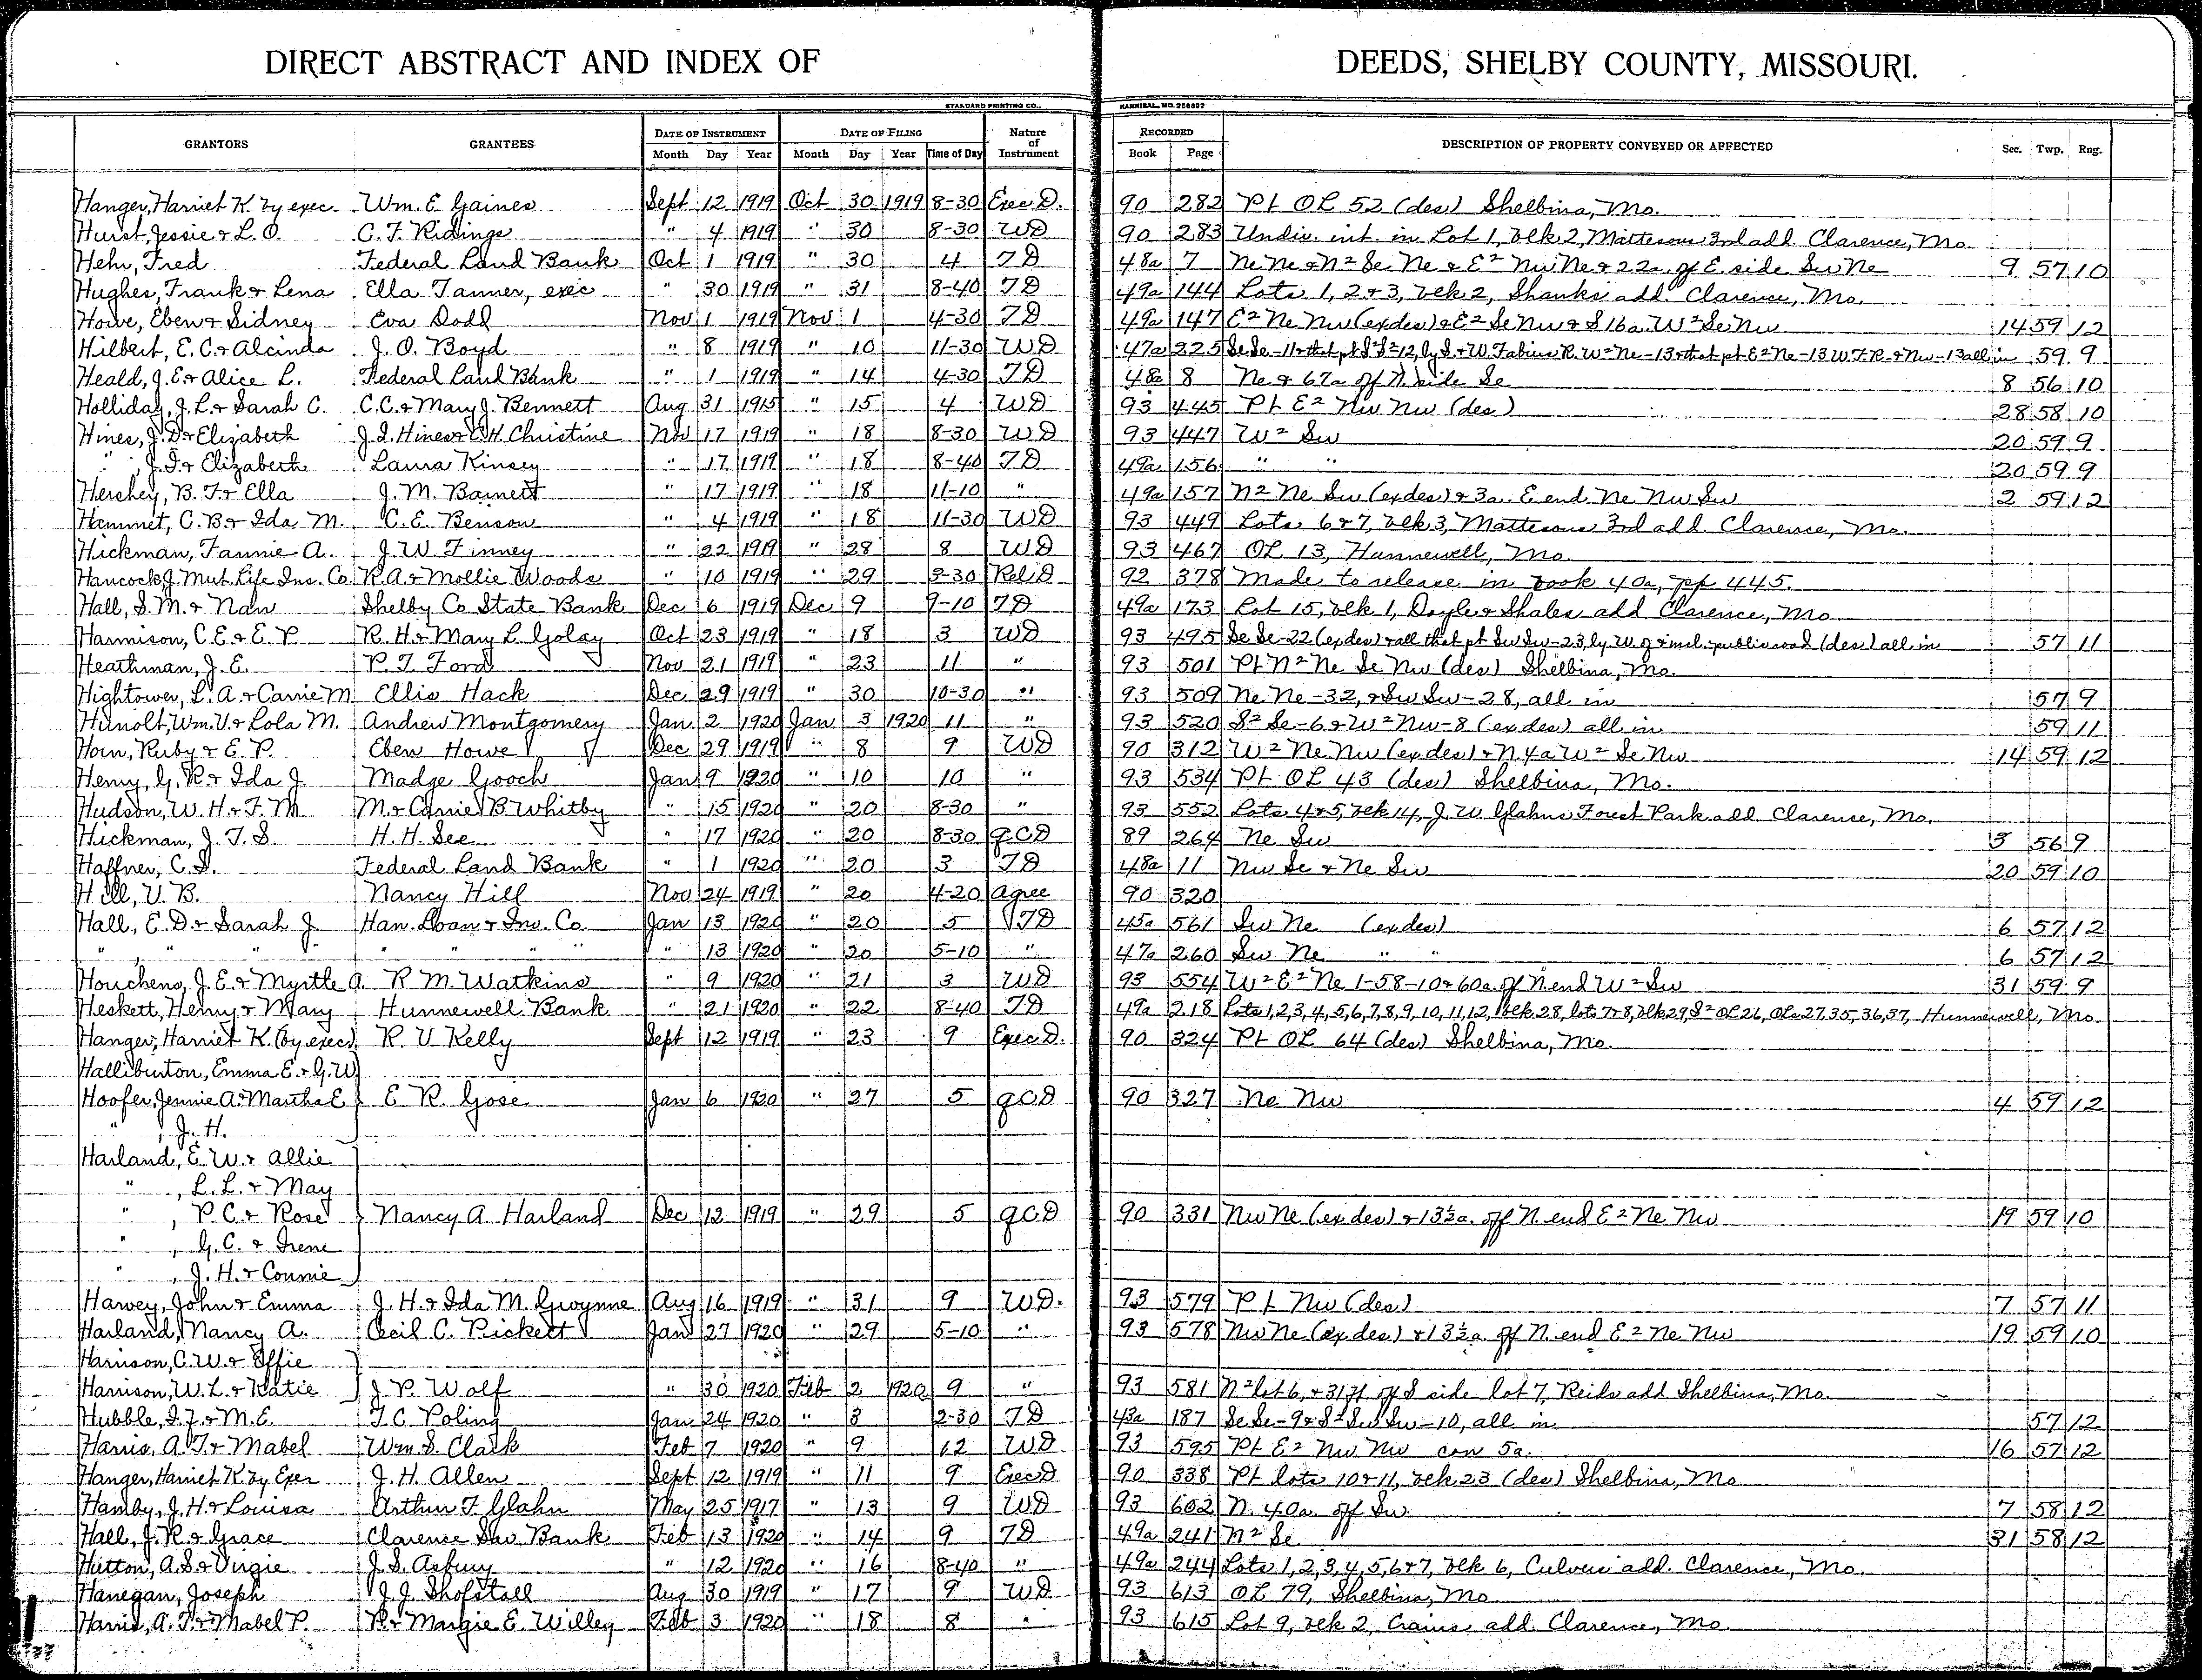 DIRECT ABSTRACT AND INDEX OF DEEDS, SHELBY COUNTY, MISSOURI.
STANDARD PRINTING CO., HANNIBAL, MO. 256627
GRANTORS GRANTEES DATE OF INSTRUMENT DATE OF FILING Nature of Instrument RECORDED DESCRIPTION OF PROPERTY CONVEYED OR AFFECTED Sec. Twp. Rng.
Month Day Year Month Day Year Time of Day Book Page
Hanger, Harriet K. by exec Wm. E. Gaines Sept 12 1919 Oct 30 1919 8-30 Exec D. 90 282 Pt OL 52 (des) Shelbina, Mo.
Hurst, Jessie & L. O. C. F. Ridings " 4 1919 " 30 8-30 WD 90 283 Undiv. int. in Lot 1, blk 2, Mattesons 3rd add Clarence, Mo.
Hehr, Fred Federal Land Bank Oct 1 1919 " 30 4 TD 48a 7 Ne Ne & N² Se Ne & E² Nw Ne & 22a. of E. side Sw Ne 9 57 10
Hughes, Frank & Lena Ella Tanner, exec " 30 1919 " 31 8-40 TD 49a 144 Lots 1, 2 & 3, blk 2, Shanks add. Clarence, Mo.
Howe, Eben & Sidney Eva Dodd Nov 1 1919 Nov 1 4-30 TD 49a 147 E² Ne Nw (ex des) & E² Se Nw & S 16a. W² Se Nw 14 59 12
Hilbert, E. C. & Alcinda J. O. Boyd " 8 1919 " 10 11-30 WD 47a 225 Se Se-11 & that pt S² S²-12, ly S. & W. Fabius R. W² Ne-13 & that pt E² Ne-13 W. F. R. & Nw-13 all in 59 9
Heald, J. E. & Alice L. Federal Land Bank " 1 1919 " 14 4-30 TD 48a 8 Ne & 67a off N. side Se 8 56 10
Holliday, J. L. & Sarah C. C. C. & Mary J. Bennett Aug 31 1915 " 15 4 WD 93 445 Pt E² Nw Nw (des) 28 58 10
Hines, J. D. & Elizabeth J. I. Hines & C. H. Christine Nov 17 1919 " 18 8-30 WD 93 447 W² Sw 20 59 9
" , J. I. & Elizabeth Laura Kinsey " 17 1919 " 18 8-40 TD 49a 156 " " 20 59 9
Hershey, B. F. & Ella J. M. Barnett " 17 1919 " 18 11-10 " 49a 157 N² Ne Sw (ex des) & 3a. E. end Ne Nw Sw 2 59 12
Hammet, C. B. & Ida M. C. E. Benson " 4 1919 " 18 11-30 WD 93 449 Lots 6 & 7, blk 3, Mattesons 3rd add Clarence, Mo.
Hickman, Fannie A. J. W. Finney " 22 1919 " 28 8 WD 93 467 OL 13, Hunnewell, Mo.
Hancock, J. Mut. Life Ins. Co. R. A. & Mollie Woods " 10 1919 " 29 3-30 Rel D 92 378 Made to release in book 40a, pp 445.
Hall, S. M. & Nan Shelby Co State Bank Dec 6 1919 Dec 9 9-10 TD 49a 173 Lot 15, blk 1, Doyle & Shales add Clarence, Mo
Harmison, C. E. & E. P. R. H. & Mary L. Golay Oct 23 1919 " 18 3 WD 93 495 Se Se-22 (ex des) & all that pt Sw Sw-23, ly W. of & incl. public road (des) all in 57 11
Heathman, J. E. P. T. Ford Nov 21 1919 " 23 11 " 93 501 Pt N² Ne Se Nw (des) Shelbina, Mo.
Hightower, L. A. & Carrie M. Ellis Hack Dec 29 1919 " 30 10-30 " 93 509 Ne Ne-32, & Sw Sw-28, all in 57 9
Hunolt, Wm. V. & Lola M. Andrew Montgomery Jan 2 1920 Jan 3 1920 11 " 93 520 S² Se-6 & W² Nw-8 (ex des) all in 59 11
Horn, Ruby & E. P. Eben Howe Dec 29 1919 " 8 9 WD 90 312 W² Ne Nw (ex des) & N. 4a W² Se Nw 14 59 12
Henry, G. R. & Ida J. Madge Gooch Jan 9 1920 " 10 10 " 93 534 Pt OL 43 (des) Shelbina, Mo.
Hudson, W. H. & F. M. M. & Carrie B. Whitby " 15 1920 " 20 8-30 " 93 552 Lots 4 & 5, blk 14, J. W. Glahns Forest Park add Clarence, Mo.
Hickman, J. T. S. H. H. See " 17 1920 " 20 8-30 QCD 89 264 Ne Sw 3 56 9
Haffner, C. S. Federal Land Bank " 1 1920 " 20 3 TD 48a 11 Nw Se & Ne Sw 20 59 10
Hill, V. B. Nancy Hill Nov 24 1919 " 20 4-20 Agree 90 320
Hall, E. D. & Sarah J. Han. Loan & Inv. Co. Jan 13 1920 " 20 5 TD 45a 561 Sw Ne (ex des) 6 57 12
" " " " " " " " " 13 1920 " 20 5-10 " 47a 260 Sw Ne " " 6 57 12
Houchens, J. E. & Myrtle A. R. M. Watkins " 9 1920 " 21 3 WD 93 554 W² E² Ne 1-58-10 & 60a. of N end W² Sw 31 59 9
Heskett, Henry & Mary Hunnewell Bank " 21 1920 " 22 8-40 TD 49a 218 Lots 1, 2, 3, 4, 5, 6, 7, 8, 9, 10, 11, 12, blk 28, lots 7 & 8, blk 29, S² OL 26, OLs 27, 35, 36, 37, Hunnewell, Mo.
Hanger, Harriet K. (by exec) R. V. Kelly Sept 12 1919 " 23 9 Exec D. 90 324 Pt OL 64 (des) Shelbina, Mo.
Halliburton, Emma E. & G. W.
Hoofer, Jennie A. & Martha E. E. R. Gose Jan 6 1920 " 27 5 QCD 90 327 Ne Nw 4 59 12
" , J. H.
Harland, E. W. & Allie
" , L. L. & May
" , P. C. & Rose Nancy A Harland Dec 12 1919 " 29 5 QCD 90 331 Nw Ne (ex des) & 13½a. off N. end E² Ne Nw 19 59 10
" , G. C. & Irene
" , J. H. & Connie
Harvey, John & Emma J. H. & Ida M. Gwynne Aug 16 1919 " 31 9 WD. 93 579 Pt Nw (des) 7 57 11
Harland, Nancy A. Cecil C. Pickett Jan 27 1920 " 29 5-10 " 93 578 Nw Ne (ex des) & 13½a. off N. end E² Ne Nw 19 59 10
Harrison, C. W. & Effie
Harrison, W. L. & Katie J. P. Wolf " 30 1920 Feb 2 1920 9 " 93 581 N² lot 6, & 31 ft off S side lot 7, Reids add Shelbina, Mo.
Hubble, I. J. & M. E. T. C. Poling Jan 24 1920 " 3 2-30 TD 43a 187 Se Se-9 & S² Sw Sw-10, all in 57 12
Harris, A. T. & Mabel Wm. S. Clark Feb 7 1920 " 9 12 WD 93 595 Pt E² Nw Nw con 5a. 16 57 12
Hanger, Harriet K. by Exer J. H. Allen Sept 12 1919 " 11 9 Exec D 90 338 Pt lots 10 & 11, blk 23 (des) Shelbina, Mo
Hamby, J. H. & Louisa Arthur F. Glahn May 25 1917 " 13 9 WD 93 602 N. 40a. off Sw 7 58 12
Hall, J. R. & Grace Clarence Sav Bank Feb 13 1920 " 14 9 TD 49a 241 N² Se 31 58 12
Hutton, A. S. & Virgie J. S. Asbury " 12 1920 " 16 8-40 " 49a 244 Lots 1, 2, 3, 4, 5, 6 & 7, blk 6, Culvers add. Clarence, Mo.
Hanegan, Joseph J. J. Shofstall Aug 30 1919 " 17 9 WD 93 613 OL 79, Shelbina, Mo
Harris, A. T. & Mabel P. R. & Margie E. Willey Feb 3 1920 " 18 8 " 93 615 Lot 9, blk 2, Crains add. Clarence, Mo.